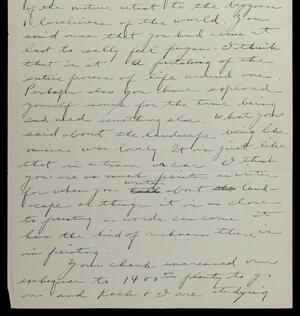 of the mature artist to the bigness
& loneliness of the world. You
said once that you had come at
last to really feel pagan. I think
that is it. A partaking of the
entire process of life around one.
Perhaps also you have explored
yourself enough for the time being
and need something else. What you
said about the landscape being like
music was lovely. It is just like
that in a train or car. I think
you are as much painter as writer
for when you write about the land-
scape or things it is as close
to painting as words can come. It
has the kind of richness there is
in painting.
Your check increased our
exchequer to 1400 00 plenty to go
on and Koch & I are studying